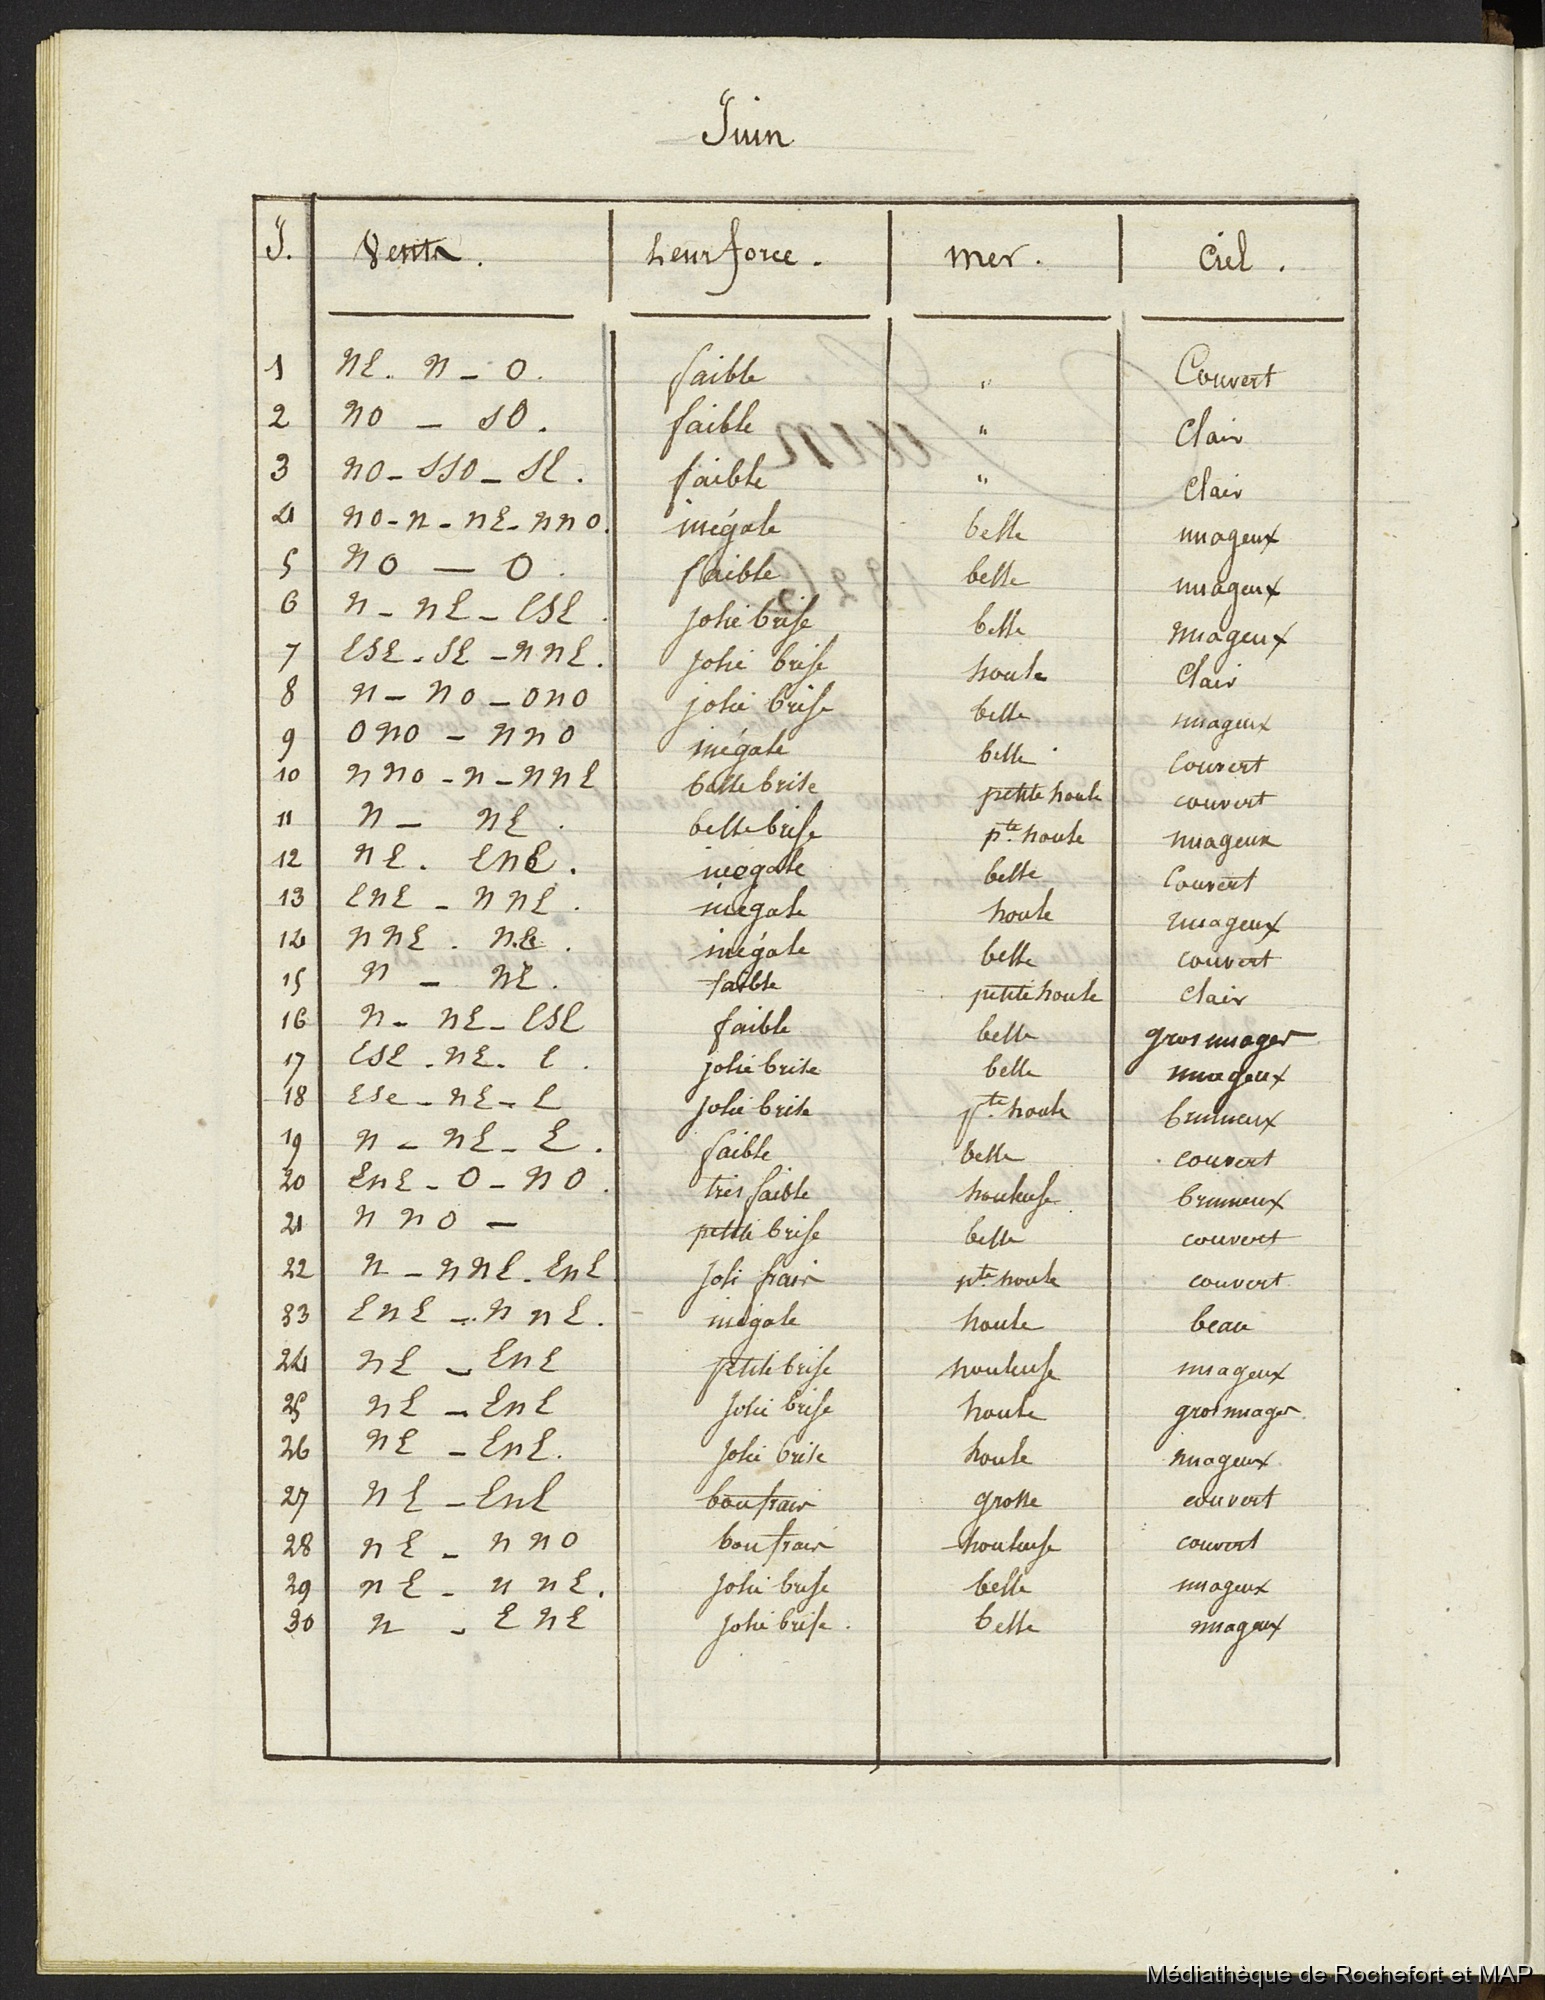 Juin
J. Vents. Leur force. Mer. Ciel.
1 NE. N - O. faible " Couvert
2 NO - SO. faible " Clair
3 NO - SSO - SE. faible " Clair
4 NO - N - NE - NNO. inégale belle nuageux
5 NO - O. faible belle nuageux
6 N - NE - ESE. jolie brise belle nuageux
7 ESE - SE - NNE. jolie brise houle Clair
8 N - NO - ONO jolie brise belle nuageux
9 ONO - NNO inégale belle couvert
10 NNO - N - NNE belle brise petite houle couvert
11 N - NE. belle brise pte houle nuageux
12 NE. ENE. inégale belle Couvert
13 ENE - NNE. inégale houle nuageux
14 NNE. NE. inégale belle couvert
15 N - NE. faible petite houle Clair
16 N - NE - ESE faible belle gros nuages
17 ESE - NE - E. jolie brise belle nuageux
18 ESE - NE - E jolie brise pte houle brumeux
19 N - NE - E. faible belle couvert
20 ENE - O - NO. très faible houleuse brumeux
21 NNO - petite brise belle couvert
22 N - NNE - ENE joli frais pte houle couvert
23 ENE - NNE. inégale houle beau
24 NE - ENE petite brise houleuse nuageux
25 NE - ENE jolie brise houle gros nuages
26 NE - ENE. jolie brise houle nuageux
27 NE - ENE bon frais grosse couvert
28 NE - NNO bon frais houleuse couvert
29 NE - NNE. jolie brise belle nuageux
30 N - ENE jolie brise. belle nuageux
Médiathèque de Rochefort et MAP